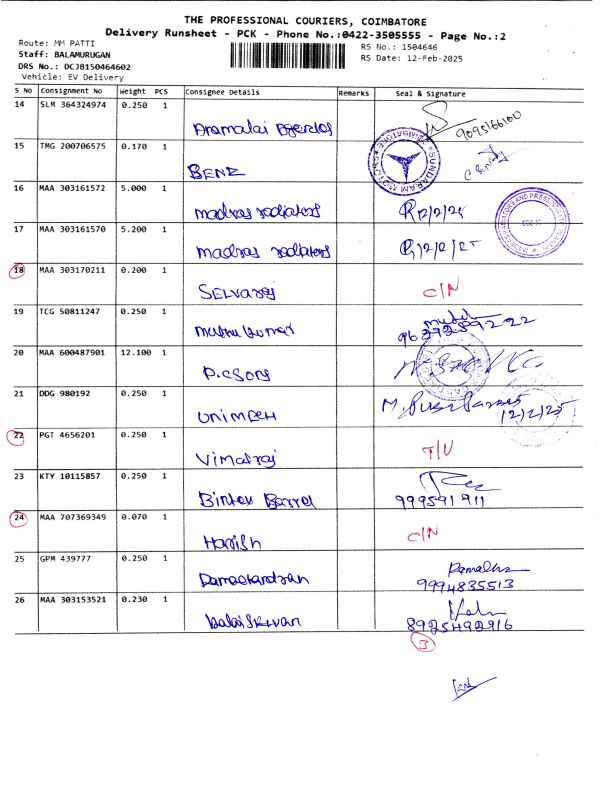 THE PROFESSIONAL COURIERS, COIMBATORE
Delivery Runsheet - PCK - Phone No.:0422-3505555 - Page No.:2
Route: MM PATTI
Staff: BALAMURUGAN
DRS No.: DCJB150464602
Vehicle: EV Delivery
RS No.: 1504646
RS Date: 12-Feb-2025
S No Consignment No Weight PCS Consignee Details Remarks Seal & Signature
14 SLM 364324974 0.250 1 9095166100
15 TMG 200706575 0.170 1 BENZ SUNDARAM MOTORS
16 MAA 303161572 5.000 1 madras radiators 12/2/25
17 MAA 303161570 5.200 1 madras radiators 12/2/25
18 MAA 303170211 0.200 1 SELVARAJ C/N
19 TCG 50811247 0.250 1 muthu kumar
20 MAA 600487901 12.100 1
21 DDG 980192 0.250 1 12/2/25
22 PGT 4656201 0.250 1 Vimalraj
23 KTY 10115857 0.250 1
24 MAA 707369349 0.070 1 Harish C/N
25 GPM 439777 0.250 1 9994835513
26 MAA 303153521 0.230 1 8925492916
3